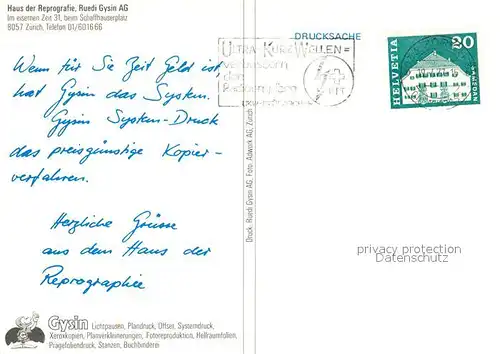 Haus der Reprografie, Ruedi Gysin AG
Im eisernen Zeit 31, beim Schaffhauserplatz
8057 Zürich, Telefon 01/601666
Wenn für Sie Zeit Geld ist,
hat Gysin das System.
Gysin System-Druck
das preisgünstige Kopier-
verfahren.
Herzliche Grüsse
aus dem Haus der
Reprographie
Gysin Lichtpausen, Plandruck, Offset, Systemdruck,
Xeroxkopien, Planverkleinerungen, Fotoreproduktion, Hellraumfolien,
Prägefoliendruck, Stanzen, Buchbinderei
Druck: Ruedi Gysin AG, Foto: Adwork AG, Zürich
DRUCKSACHE
ULTRA KURZ WELLEN =
HELVETIA
20
privacy protection
Datenschutz